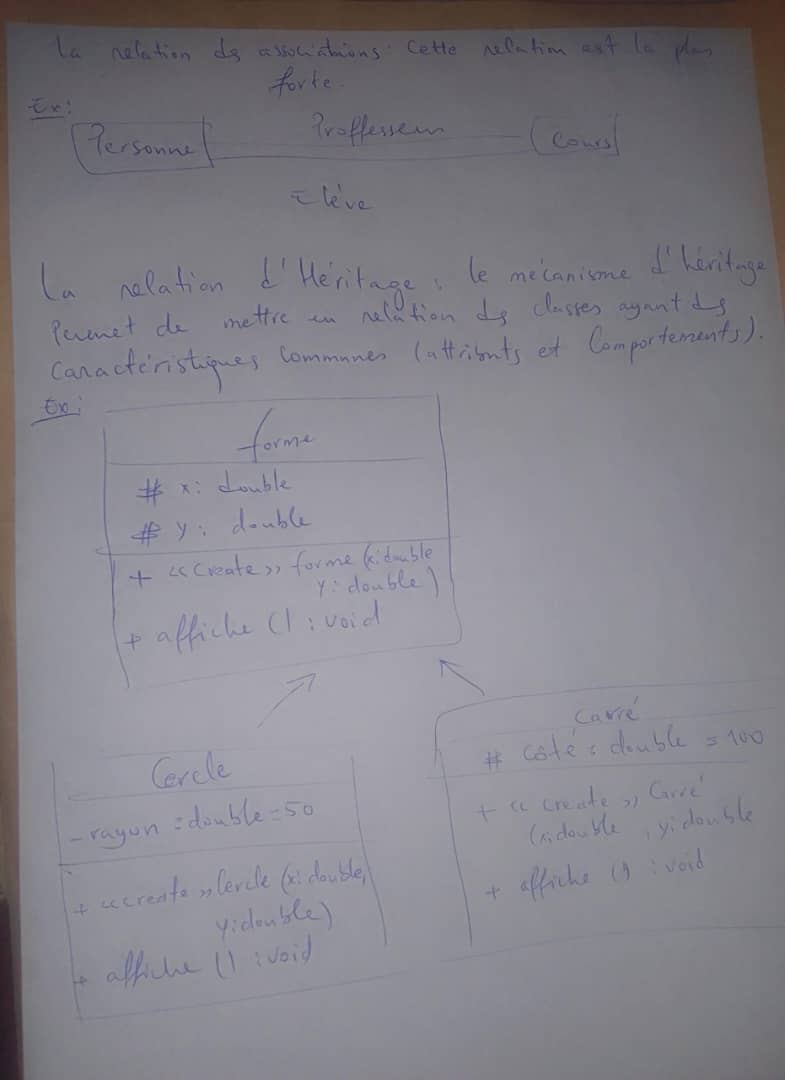 La relation des associations: Cette relation est la plus
forte.
Ex:
Personne Proffesseur Cours
Elève
La relation d'Héritage : le mécanisme d'héritage
Permet de mettre en relation des classes ayant des
caractéristiques communes (attributs et Comportements).
Ex:
forme
# x: double
# y: double
+ «create» forme (x:double
y:double)
+ affiche () : void
Cercle
- rayon = double = 50
+ «create» Cercle (x:double,
y:double)
+ affiche () : void
Carré
# côté : double = 100
+ «create» Carré
(x:double, y:double
+ affiche () : void